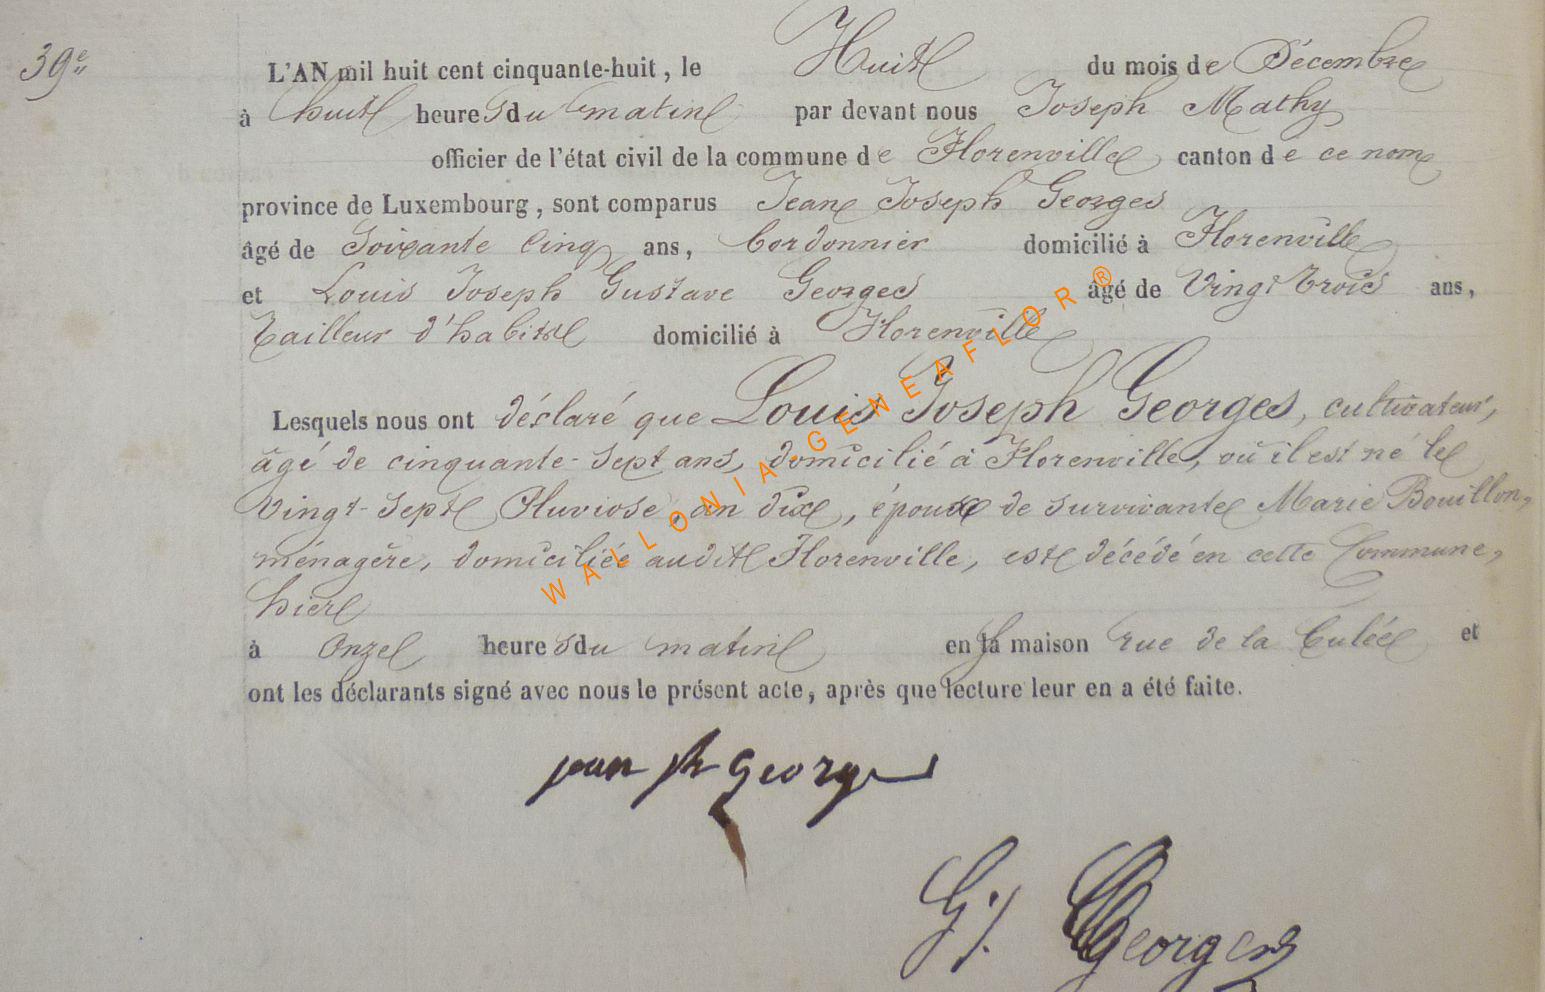 39e
L'AN mil huit cent cinquante-huit, le Huit du mois de Décembre
à huit heures du matin par devant nous Joseph Mathy
officier de l'état civil de la commune de Florenville canton de ce nom
province de Luxembourg, sont comparus Jean Joseph Georges
âgé de Soixante Cinq ans, Cordonnier domicilié à Florenville
et Louis Joseph Gustave Georges âgé de Vingt trois ans,
tailleur d'habits domicilié à Florenville
Lesquels nous ont déclaré que Louis Joseph Georges, cultivateur,
âgé de cinquante-sept ans, domicilié à Florenville, où il est né le
vingt-sept Pluviose, an dix, époux de survivante Marie Bouillon,
ménagère, domiciliée audit Florenville, est décédé en cette Commune,
hier
à Onze heures du matin en la maison rue de la Culée et
ont les déclarants signé avec nous le présent acte, après que lecture leur en a été faite.
jean jh George
G. j. Georges
WALLONIA-GENEAFLOR®